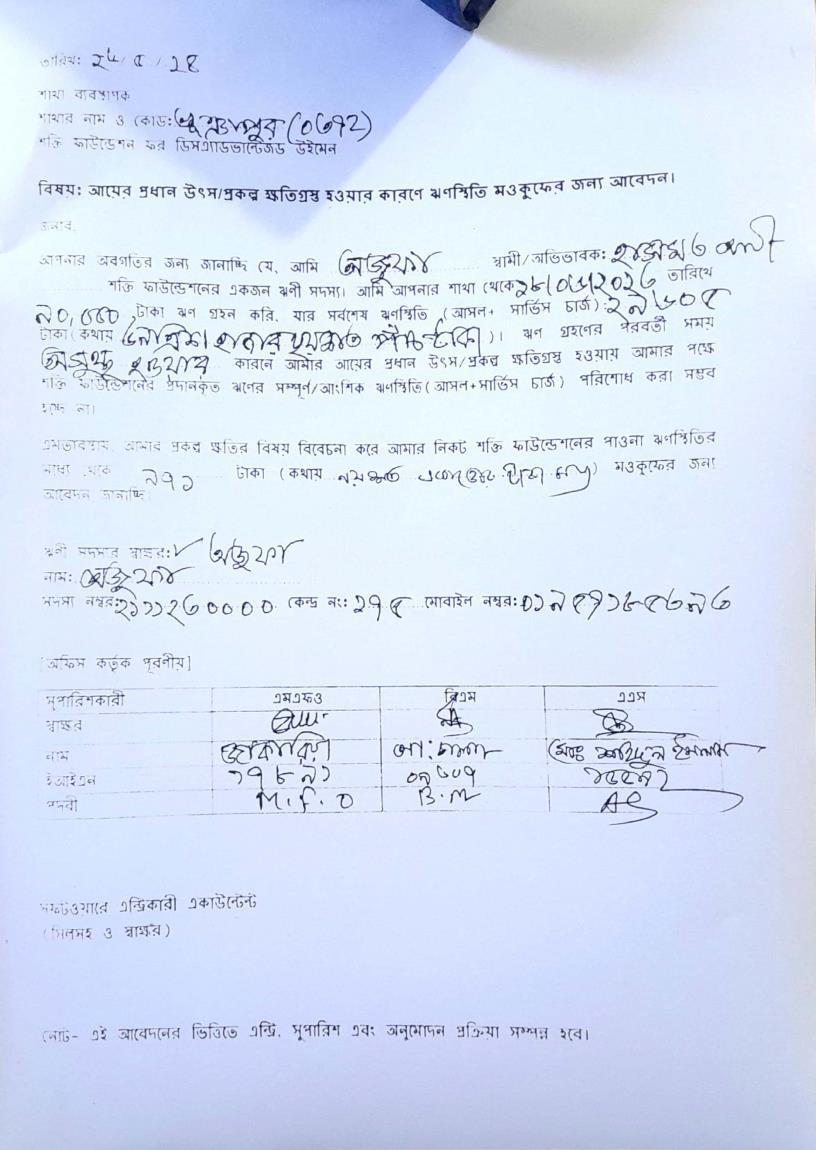 তারিখ: ২৮/৫/২৪
শাখা ব্যবস্থাপক
শাখার নাম ও কোড: (০৬৭২)
শক্তি ফাউন্ডেশন ফর ডিসএ্যাডভান্টেজড উইমেন
বিষয়: আয়ের প্রধান উৎস/প্রকল্প ক্ষতিগ্রস্থ হওয়ার কারণে ঋণস্থিতি মওকুফের জন্য আবেদন।
জনাব,
আপনার অবগতির জন্য জানাচ্ছি যে, আমি অজুফা স্বামী/অভিভাবক: হাজমত আলী
শক্তি ফাউন্ডেশনের একজন ঋনী সদস্য। আমি আপনার শাখা থেকে তারিখে
টাকা ঋণ গ্রহন করি, যার সর্বশেষ ঋণস্থিতি (আসল+ সার্ভিস চার্জ): ২৯৬০৫
টাকা (কথায় উনত্রিশ হাজার ছয়শত পাঁচ টাকা)। ঋণ গ্রহণের পরবর্তী সময়
অসুস্থ হওয়ার কারনে আমার আয়ের প্রধান উৎস/প্রকল্প ক্ষতিগ্রস্থ হওয়ায় আমার পক্ষে
শক্তি ফাউন্ডেশনের প্রদানকৃত ঋনের সম্পূর্ণ/আংশিক ঋণস্থিতি (আসল+সার্ভিস চার্জ) পরিশোধ করা সম্ভব
হচ্ছে না।
এমতাবস্থায়, আমার প্রকল্প ক্ষতির বিষয় বিবেচনা করে আমার নিকট শক্তি ফাউন্ডেশনের পাওনা ঋণস্থিতির
মধ্যে থেকে ৯৭১ টাকা (কথায় নয়শত একাত্তর টাকা মাত্র) মওকুফের জন্য
আবেদন জানাচ্ছি।
ঋনী সদস্যর স্বাক্ষর: অজুফা
নাম: অজুফা
সদস্য নম্বর: কেন্দ্র নং: ২৭৫ মোবাইল নম্বর:
[অফিস কর্তৃক পূরনীয়]
সুপারিশকারী এমএফও বিএম এএস
স্বাক্ষর
নাম জাকারিয়া মোঃ শহিদুল ইসলাম
ইআইএন ১৭৮৯১ ০৯৬০৭
পদবী M.F.O B.M AS
সফটওয়্যারে এন্ট্রিকারী একাউন্টেন্ট
(সিলসহ ও স্বাক্ষর)
নোট- এই আবেদনের ভিত্তিতে এন্ট্রি, সুপারিশ এবং অনুমোদন প্রক্রিয়া সম্পন্ন হবে।